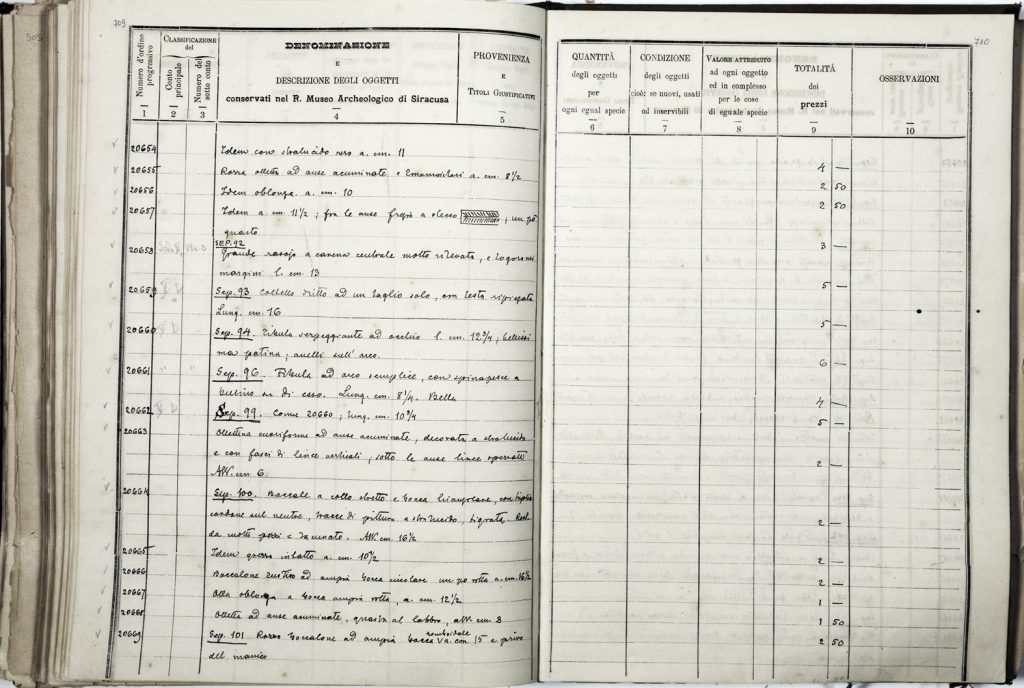 709
505
Numero d'ordine progressivo
1
CLASSIFICAZIONE del
Conto principale
2
Numero del sotto conto
3
DENOMINAZIONE
E
DESCRIZIONE DEGLI OGGETTI
conservati nel R. Museo Archeologico di Siracusa
4
PROVENIENZA
E
TITOLI GIUSTIFICATIVI
5
20654 Idem con stralucido nero a. cm. 11
20655 Rossa olletta ad anse acuminate e a. cm. 8 1/2
20656 Idem oblonga. a. cm. 10
20657 Idem a cm. 11 1/2 ; fra le anse fregio a stecco ; un po'
guasto
SEP. 92
20658 Grande rasojo a carena centrale molto rilevata, e logoro nei
margini l. cm. 13
20659 Sep. 93 Coltello dritto ad un taglio solo, con testa ripiegata
Lung. cm. 16
20660 Sep. 94. Fibula serpeggiante ad occhio l. cm. 12 3/4 ; bellissi
ma patina ; anelli sull' arco.
20661 Sep. 96. Fibula ad arco semplice, con spinapesce a
bulino su di esso. Lung. cm. 8 1/4. Bella
20662 Sep. 99. Come 20660 ; lung. cm. 10 3/4
20663 Ollettina cuoriforme ad anse acuminate, decorata a stralucido
e con fasci di linee verticali ; sotto le anse linee spezzate
Alt. cm. 6.
20664 Sep. 100. Boccale a collo stretto e bocca triangolare, con triplice
cordone sul ventre, tracce di pittura a stralucido, tigrata. Rest.
da molti pezzi e lacunato. Alt. cm. 16 1/2
20665 Idem grezzo intatto a. cm. 10 1/2
20666 Boccalone rustico ad ampia bocca circolare un po rotta a. cm. 16 1/2
20667 Olla oblonga a bocca ampia rotta, a. cm. 12 1/2
20668 Olletta ad anse acuminate, guasta al labbro, alt. cm. 8
20669 Sep. 101 Rozzo boccalone ad ampia bocca romboidale a. cm. 15 e privo
del manico
710
QUANTITÀ
degli oggetti
per
ogni egual specie
6
CONDIZIONE
degli oggetti
cioè: se nuovi, usati
od inservibili
7
VALORE ATTRIBUITO
ad ogni oggetto
ed in complesso
per le cose
di eguale specie
8
TOTALITÀ
dei
prezzi
9
OSSERVAZIONI
10
4 —
2 50
2 50
3 —
5 —
5 —
6 —
4 —
5 —
2 —
2 —
2 —
2 —
1 —
1 50
2 50